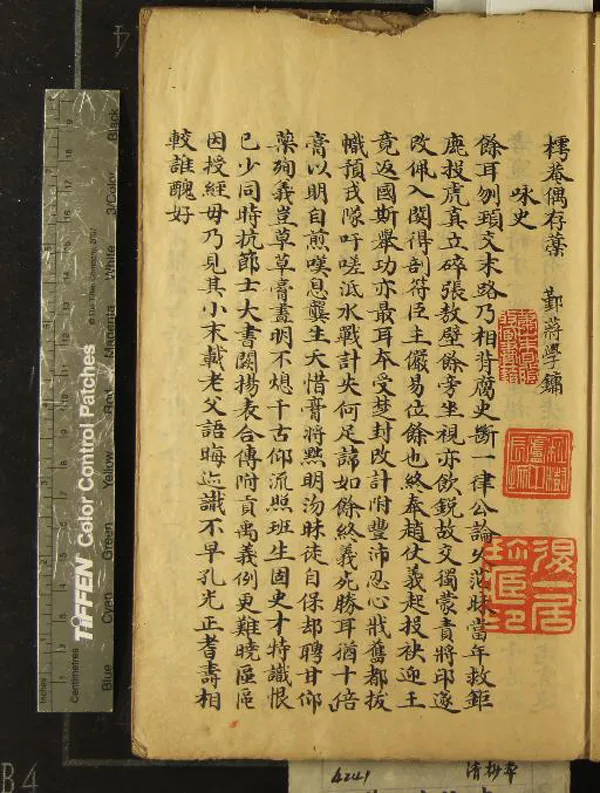 樗菴偶存藁　鄞蔣學鏞
詠史
餘耳刎頸交末路乃相背腐史斷一律公論久茫昧當年救鉅
鹿投虎真立碎張敖壁餘旁坐視亦飲銳故交獨蒙責將印遂
改佩入関得剖符臣主儼易位餘也終奉趙仗義起投袂迎王
竟返國斯舉功亦最耳夲受楚封改計附豐沛忍心戕舊都拔
幟預戎隊吁嗟泜水戰計失何足諦如餘終義死勝耳猶十倍
膏以明自煎嘆息龔生夭惜膏將㸃明汤昧徒自保却聘甘仰
藥殉義豈草草膏晝明不熄千古仰流照班生固史才特識恨
已少同時抗節士大書闕揚表合傳附貢禹義例更難曉區區
因授經毋乃見其小末載老父語晦迹識不早孔光正耆壽相
較誰醜好
Inches
Centimetres
TIFFEN Color Control Patches
© The Tiffen Company, 2007
Blue
Cyan
Green
Yellow
Red
Magenta
White
3/Color
Black
B4
4241
清抄本